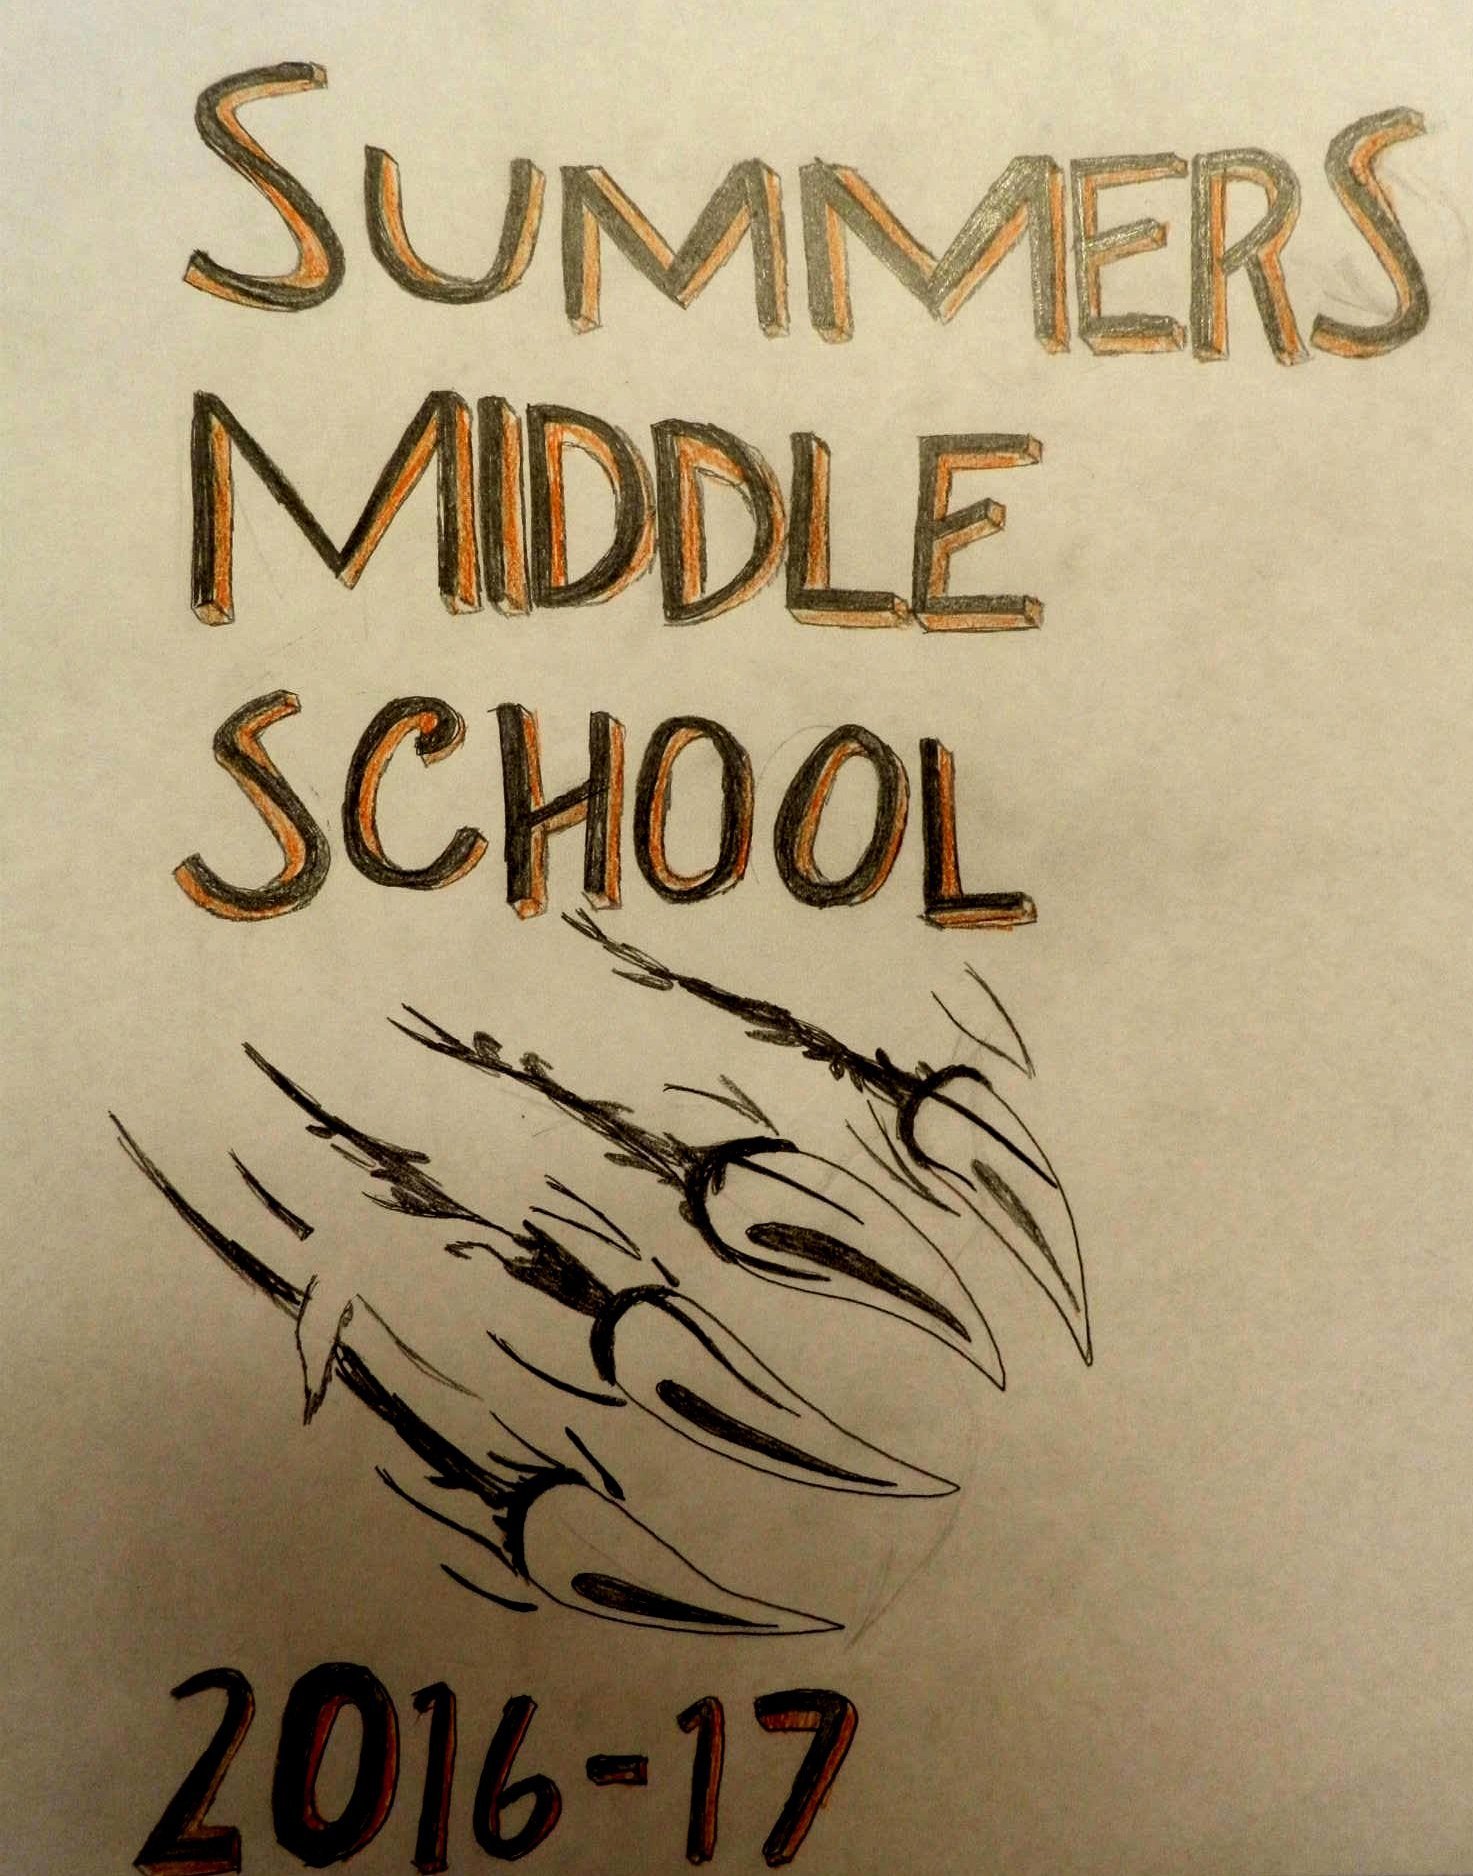 SUMMERS
MIDDLE
SCHOOL
2016-17